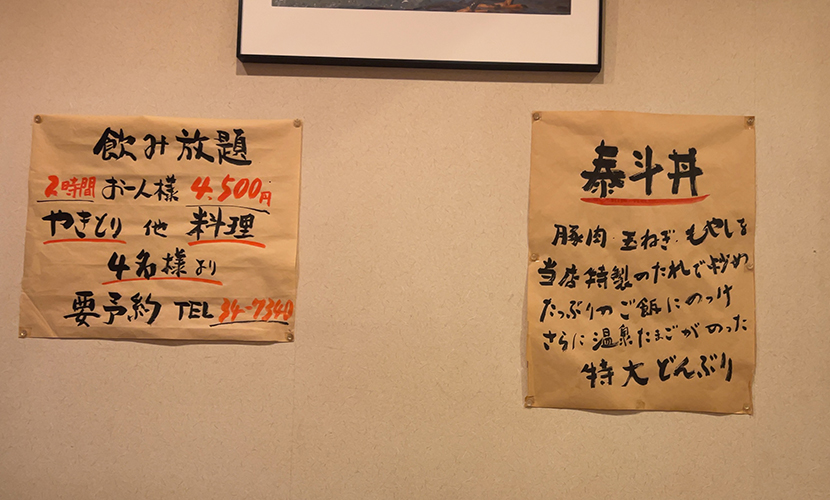 飲み放題
2時間 お一人様 4,500円
やきとり 他 料理
4名様より
要予約 TEL 34-7340
泰斗丼
豚肉 玉ねぎ・もやしを
当店特製のたれで炒め
たっぷりのご飯にのっけ
さらに温泉たまごがのった
特大どんぶり